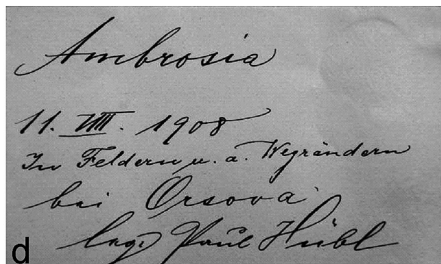 Ambrosia
11. VIII. 1908
In Feldern u. a. Wegrändern
bei Orsova
legt Paul Hübl
d